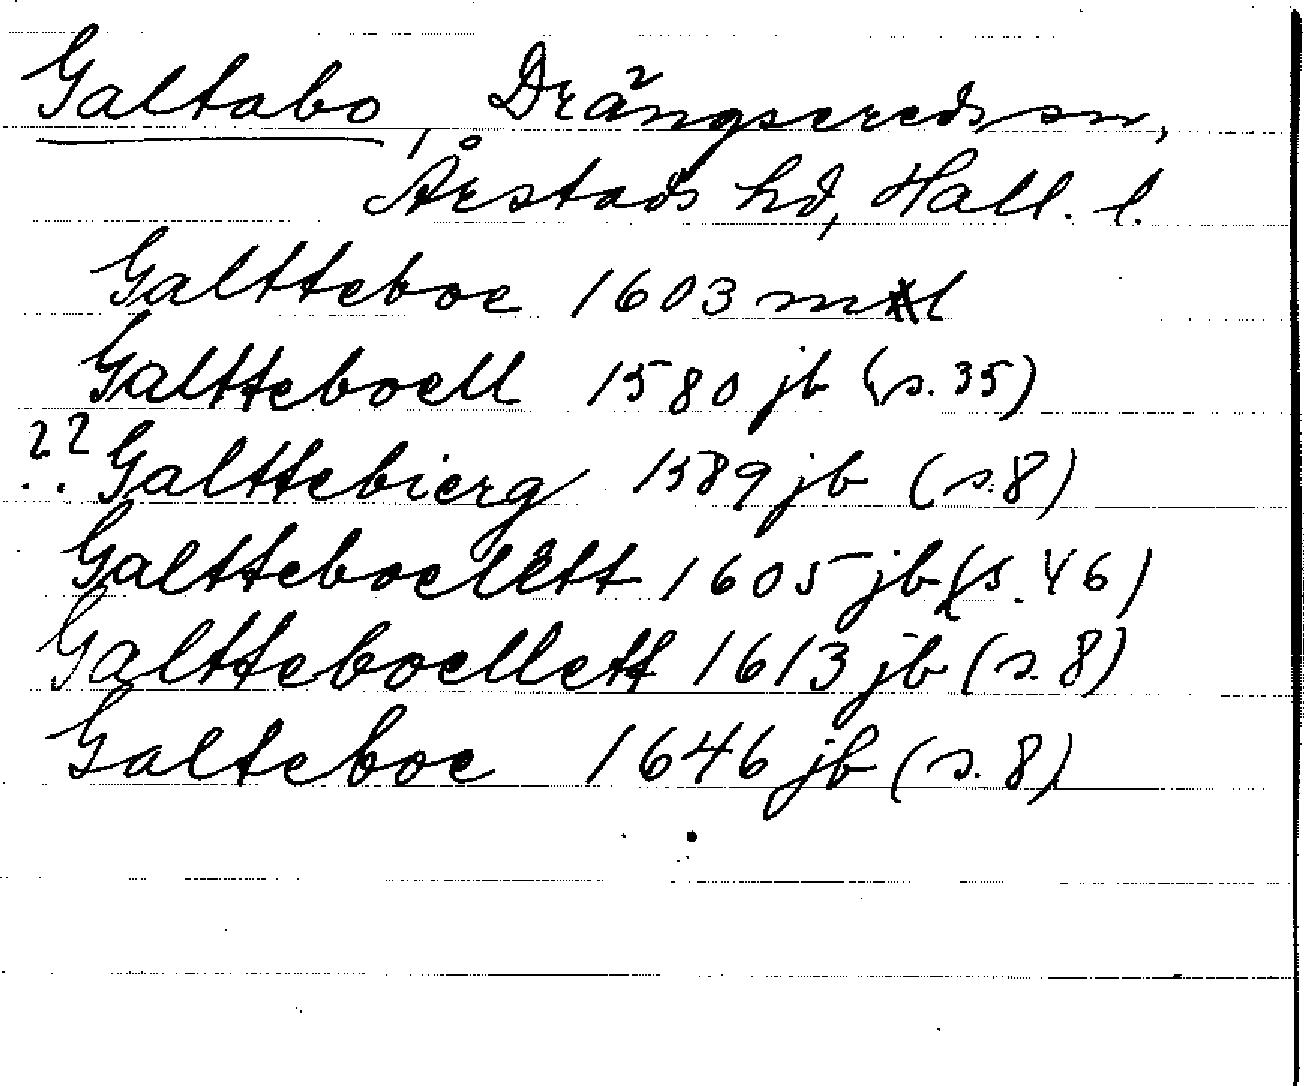 Galtabo, Drängsereds sn,
Årstads hd, Hall. l.
Galtteboe 1603 mtl
Galtteboell 1580 jb (s. 35)
?? Galttebierg 1589 jb (s. 8)
Galtteboellett 1605 jb (s. 46)
Galtteboellett 1613 jb (s. 8)
Galteboe 1646 jb (s. 8)